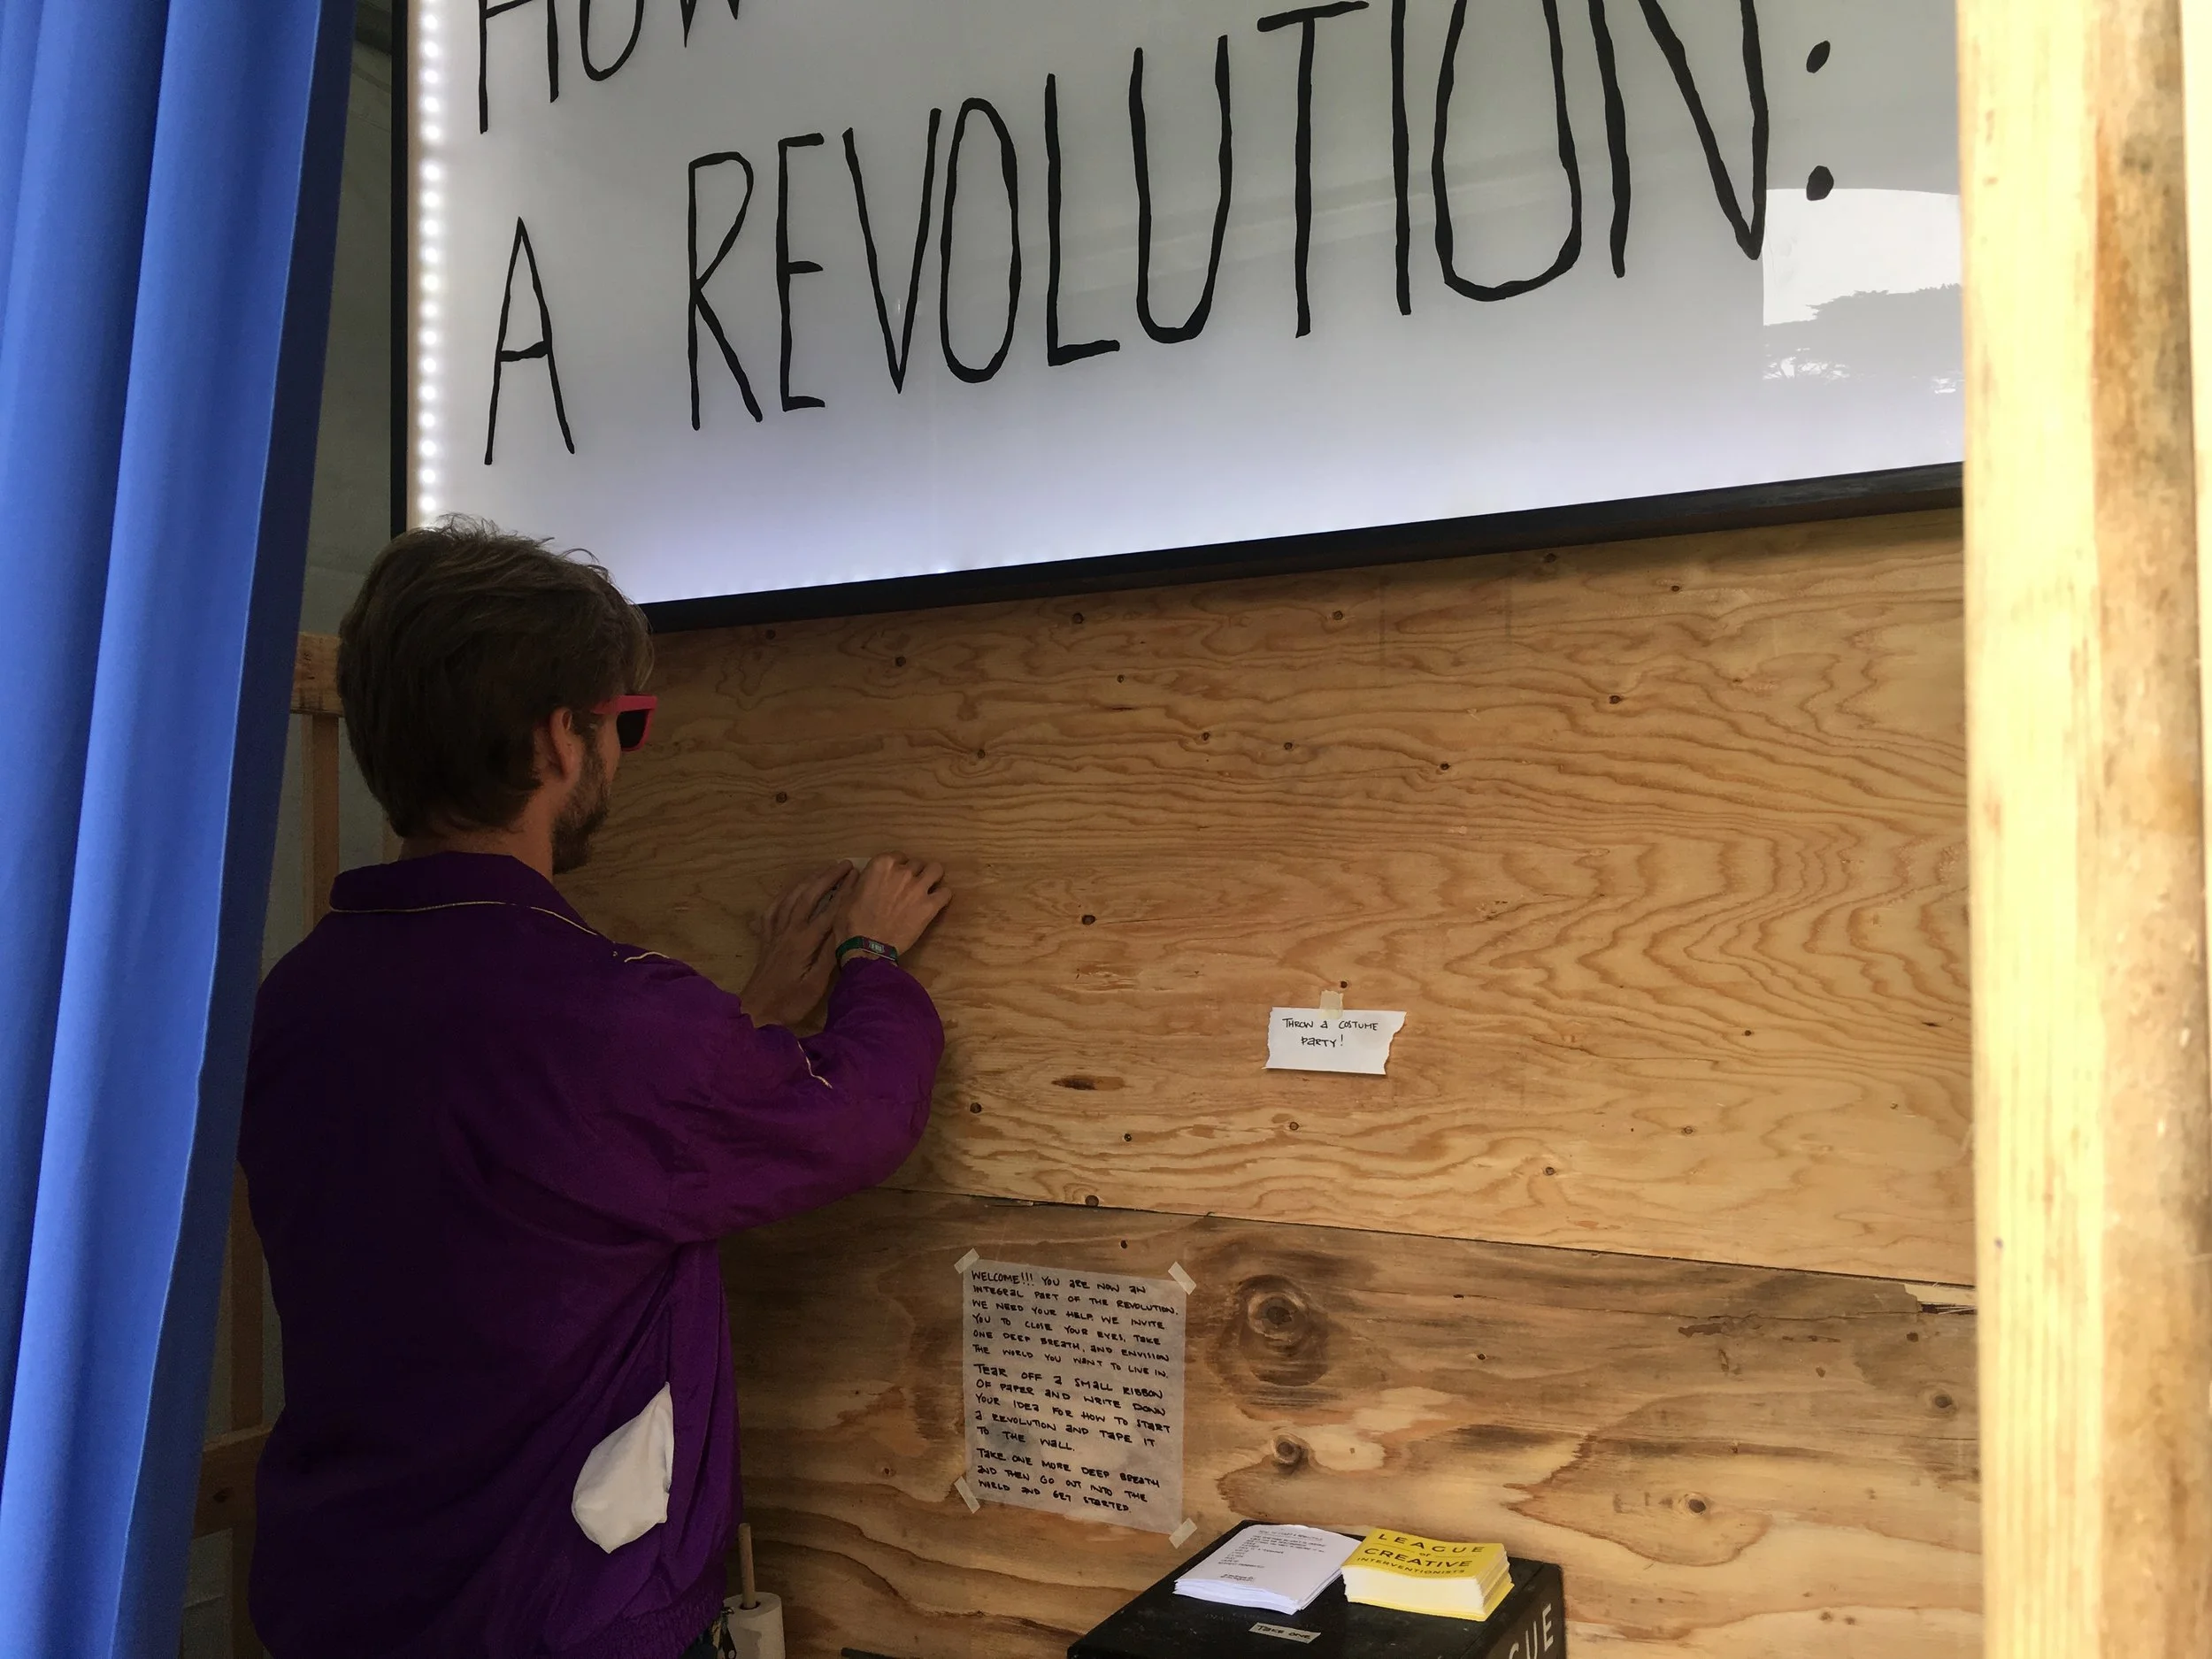 HOW
A REVOLUTION:
THROW A COSTUME
PARTY!
WELCOME!!! YOU ARE NOW AN
INTEGRAL PART OF THE REVOLUTION.
WE NEED YOUR HELP. WE INVITE
YOU TO CLOSE YOUR EYES, TAKE
ONE DEEP BREATH, AND ENVISION
THE WORLD YOU WANT TO LIVE IN.
TEAR OFF A SMALL RIBBON
OF PAPER AND WRITE DOWN
YOUR IDEA FOR HOW TO START
A REVOLUTION AND TAPE IT
TO THE WALL.
TAKE ONE MORE DEEP BREATH
AND THEN GO OUT INTO THE
WORLD AND GET STARTED.
LEAGUE
OF
CREATIVE
INTERVENTIONISTS
TAKE ONE
GUE